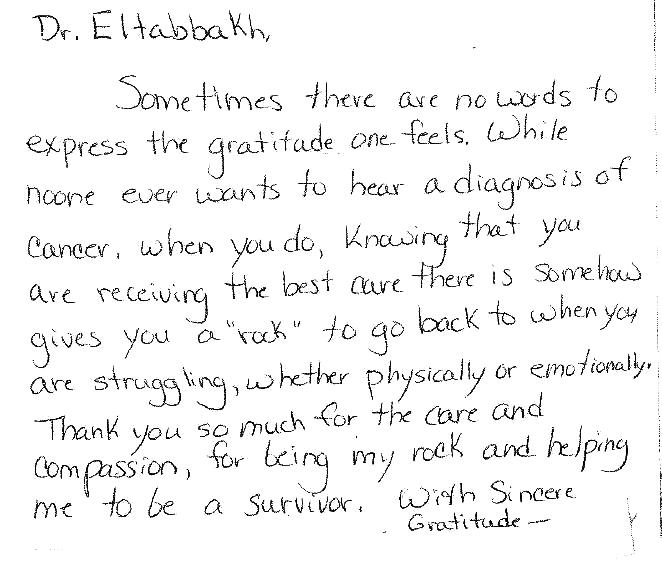 Dr. Eltabbakh,
Sometimes there are no words to
express the gratitude one feels. While
noone ever wants to hear a diagnosis of
Cancer, when you do, Knowing that you
are receiving the best care there is somehow
gives you a "rock" to go back to when you
are struggling, whether physically or emotionally.
Thank you so much for the care and
Compassion, for being my rock and helping
me to be a survivor. With Sincere
Gratitude —